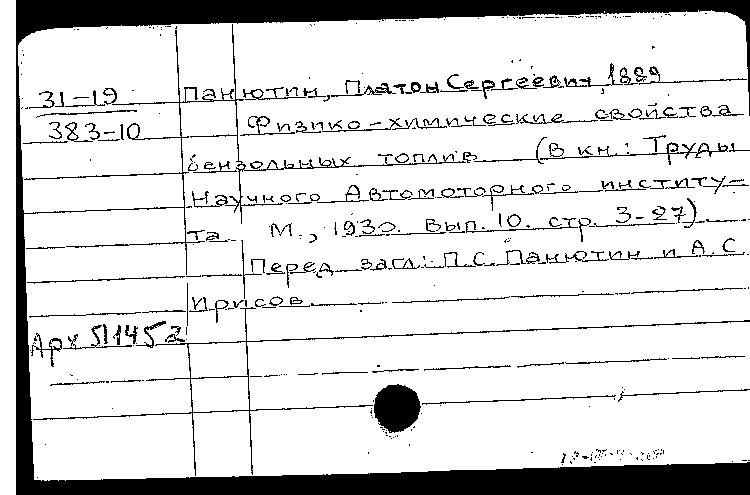 31-19
383-10
Панютин, Платон Сергеевич, 1889
Физико-химические свойства
бензольных топлив (В кн.: Труды
Научного Автомоторного институ-
та М., 1930. Вып. 10. стр. 3-27).
Перед загл: П.С. Панютин и А.С.
Ирисов.
Арх 511452